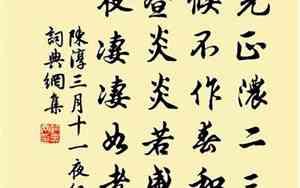 光正濃二三
候不作春和
晝炎炎若盛
夜凄凄如老
陳淳三月十一夜紀
詞典網集